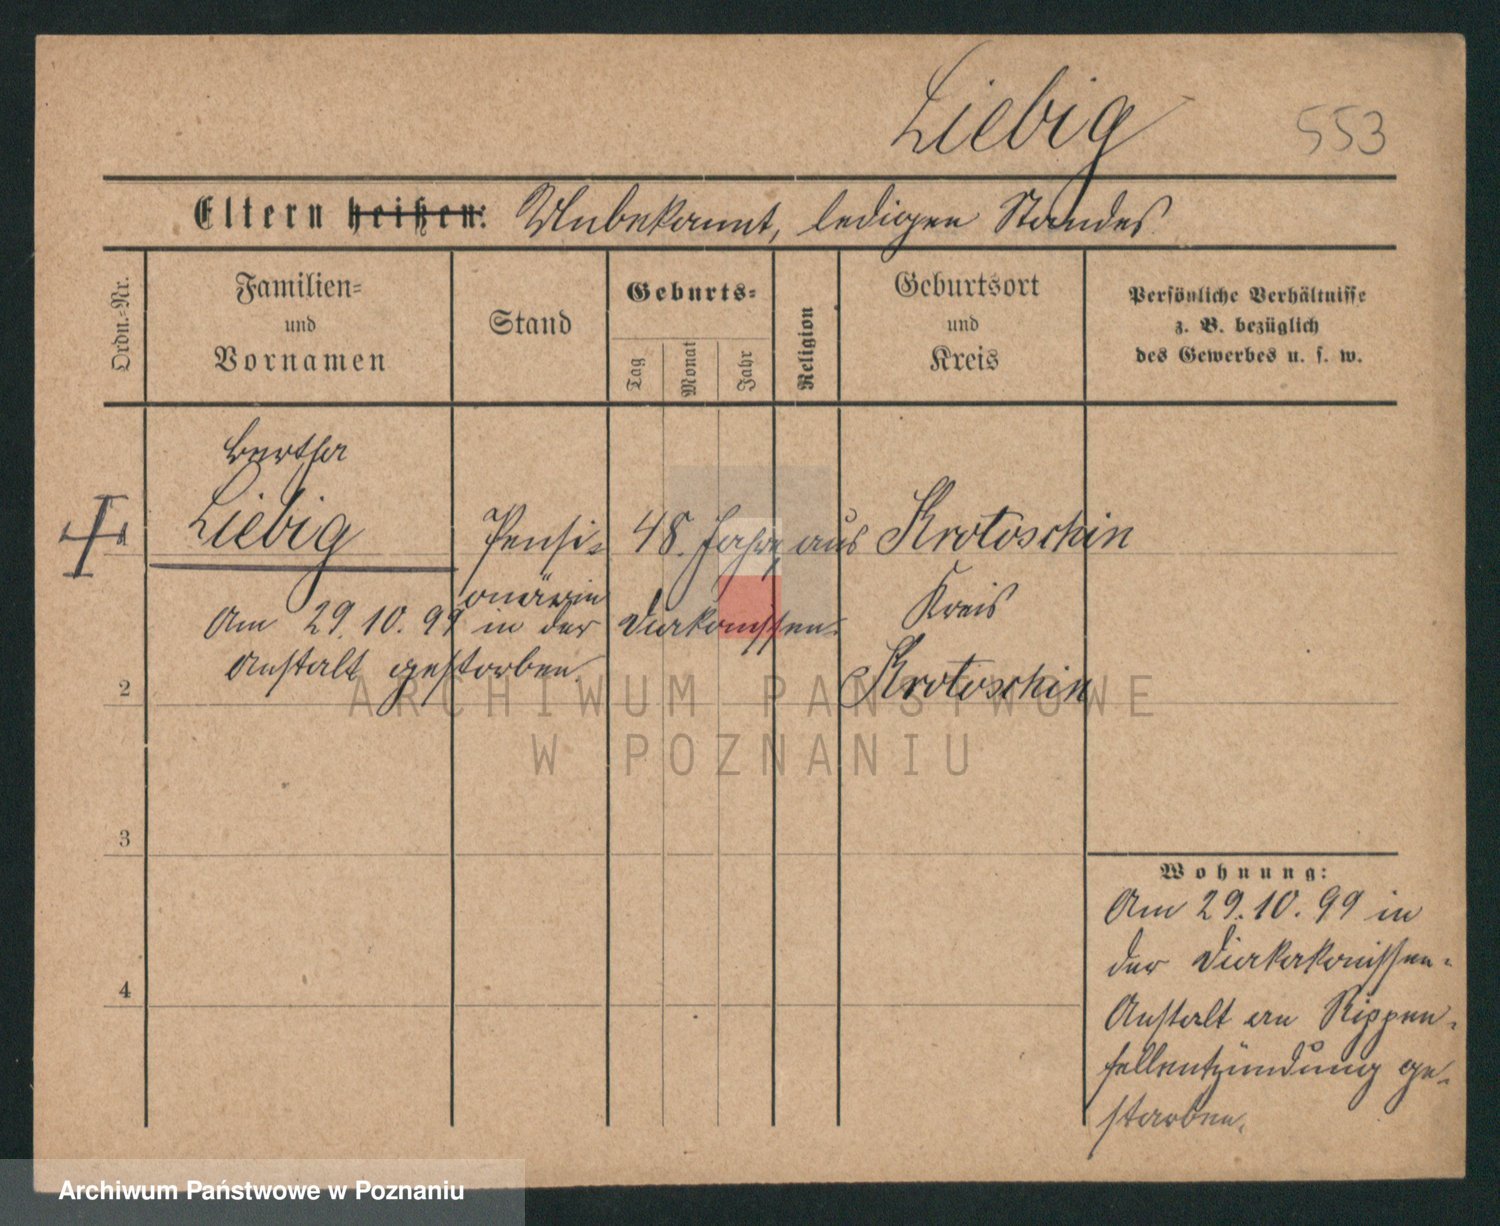 Liebig 553
Eltern heißen: Unbekannt, ledigen Standes
Ordn.-Nr.
Familien-
und
Vornamen
Stand
Geburts-
Tag
Monat
Jahr
Religion
Geburtsort
und
Kreis
Persönliche Verhältnisse
z. B. bezüglich
des Gewerbes u. s. w.
Bertha
Liebig Pensi- 48. Jahre, aus Krotoschin
onärin Kreis
Am 29. 10. 99 in der Diakonissen-
Anstalt gestorben. Krotoschin
2
ARCHIWUM PAŃSTWOWE
W POZNANIU
3
Wohnung:
Am 29. 10. 99 in
der Diakakonissen-
4
Anstalt an Rippen-
fellentzündung ge-
storben.
Archiwum Państwowe w Poznaniu